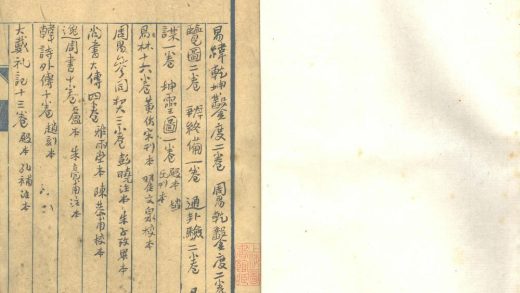 易緯乾坤鑿度二卷 周易乾鑿度二卷
覽圖二卷 辨終備一卷 通卦驗二卷
謀一卷 坤靈圖一卷 殿本
易林十六卷 黃仿宋刊本 翟文泉校本
周易參同契三卷 彭曉注本 朱子攷異本
尚書大傳四卷 雅雨堂本 陳恭甫校本
逸周書十卷 盧本 朱右甫注本
韓詩外傳十卷 趙刻本
大戴礼記十三卷 殿本 孔補注本